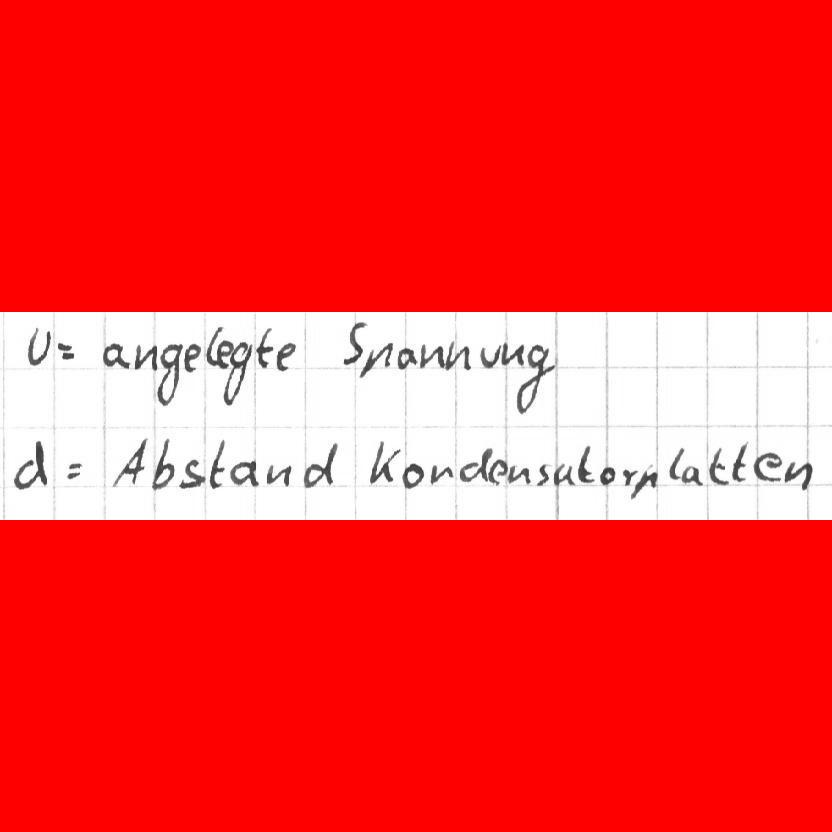 U= angelegte Spannung
d = Abstand Kondensatorplatten